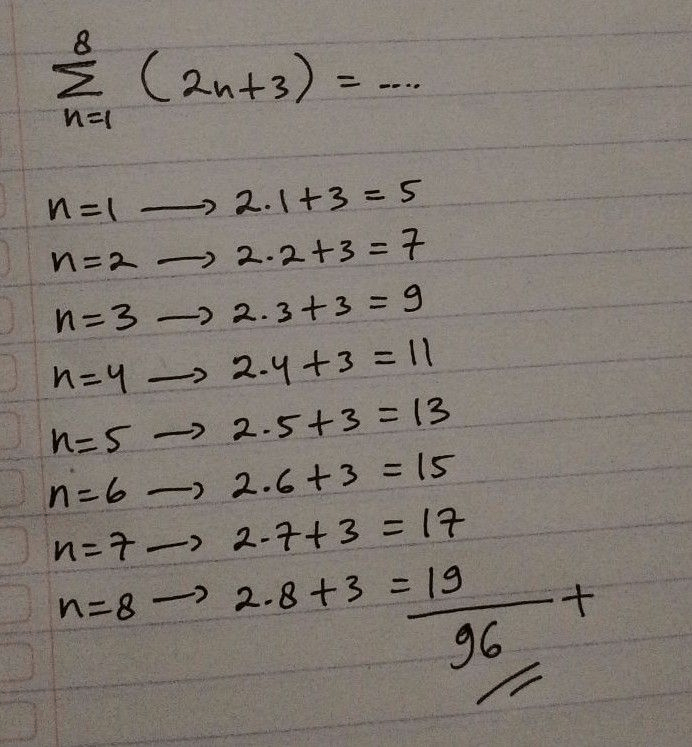 8
Σ (2n+3) = ....
n=1
n=1 → 2.1+3 = 5
n=2 → 2.2+3 = 7
n=3 → 2.3+3 = 9
n=4 → 2.4+3 = 11
n=5 → 2.5+3 = 13
n=6 → 2.6+3 = 15
n=7 → 2.7+3 = 17
n=8 → 2.8+3 = 19
+
96